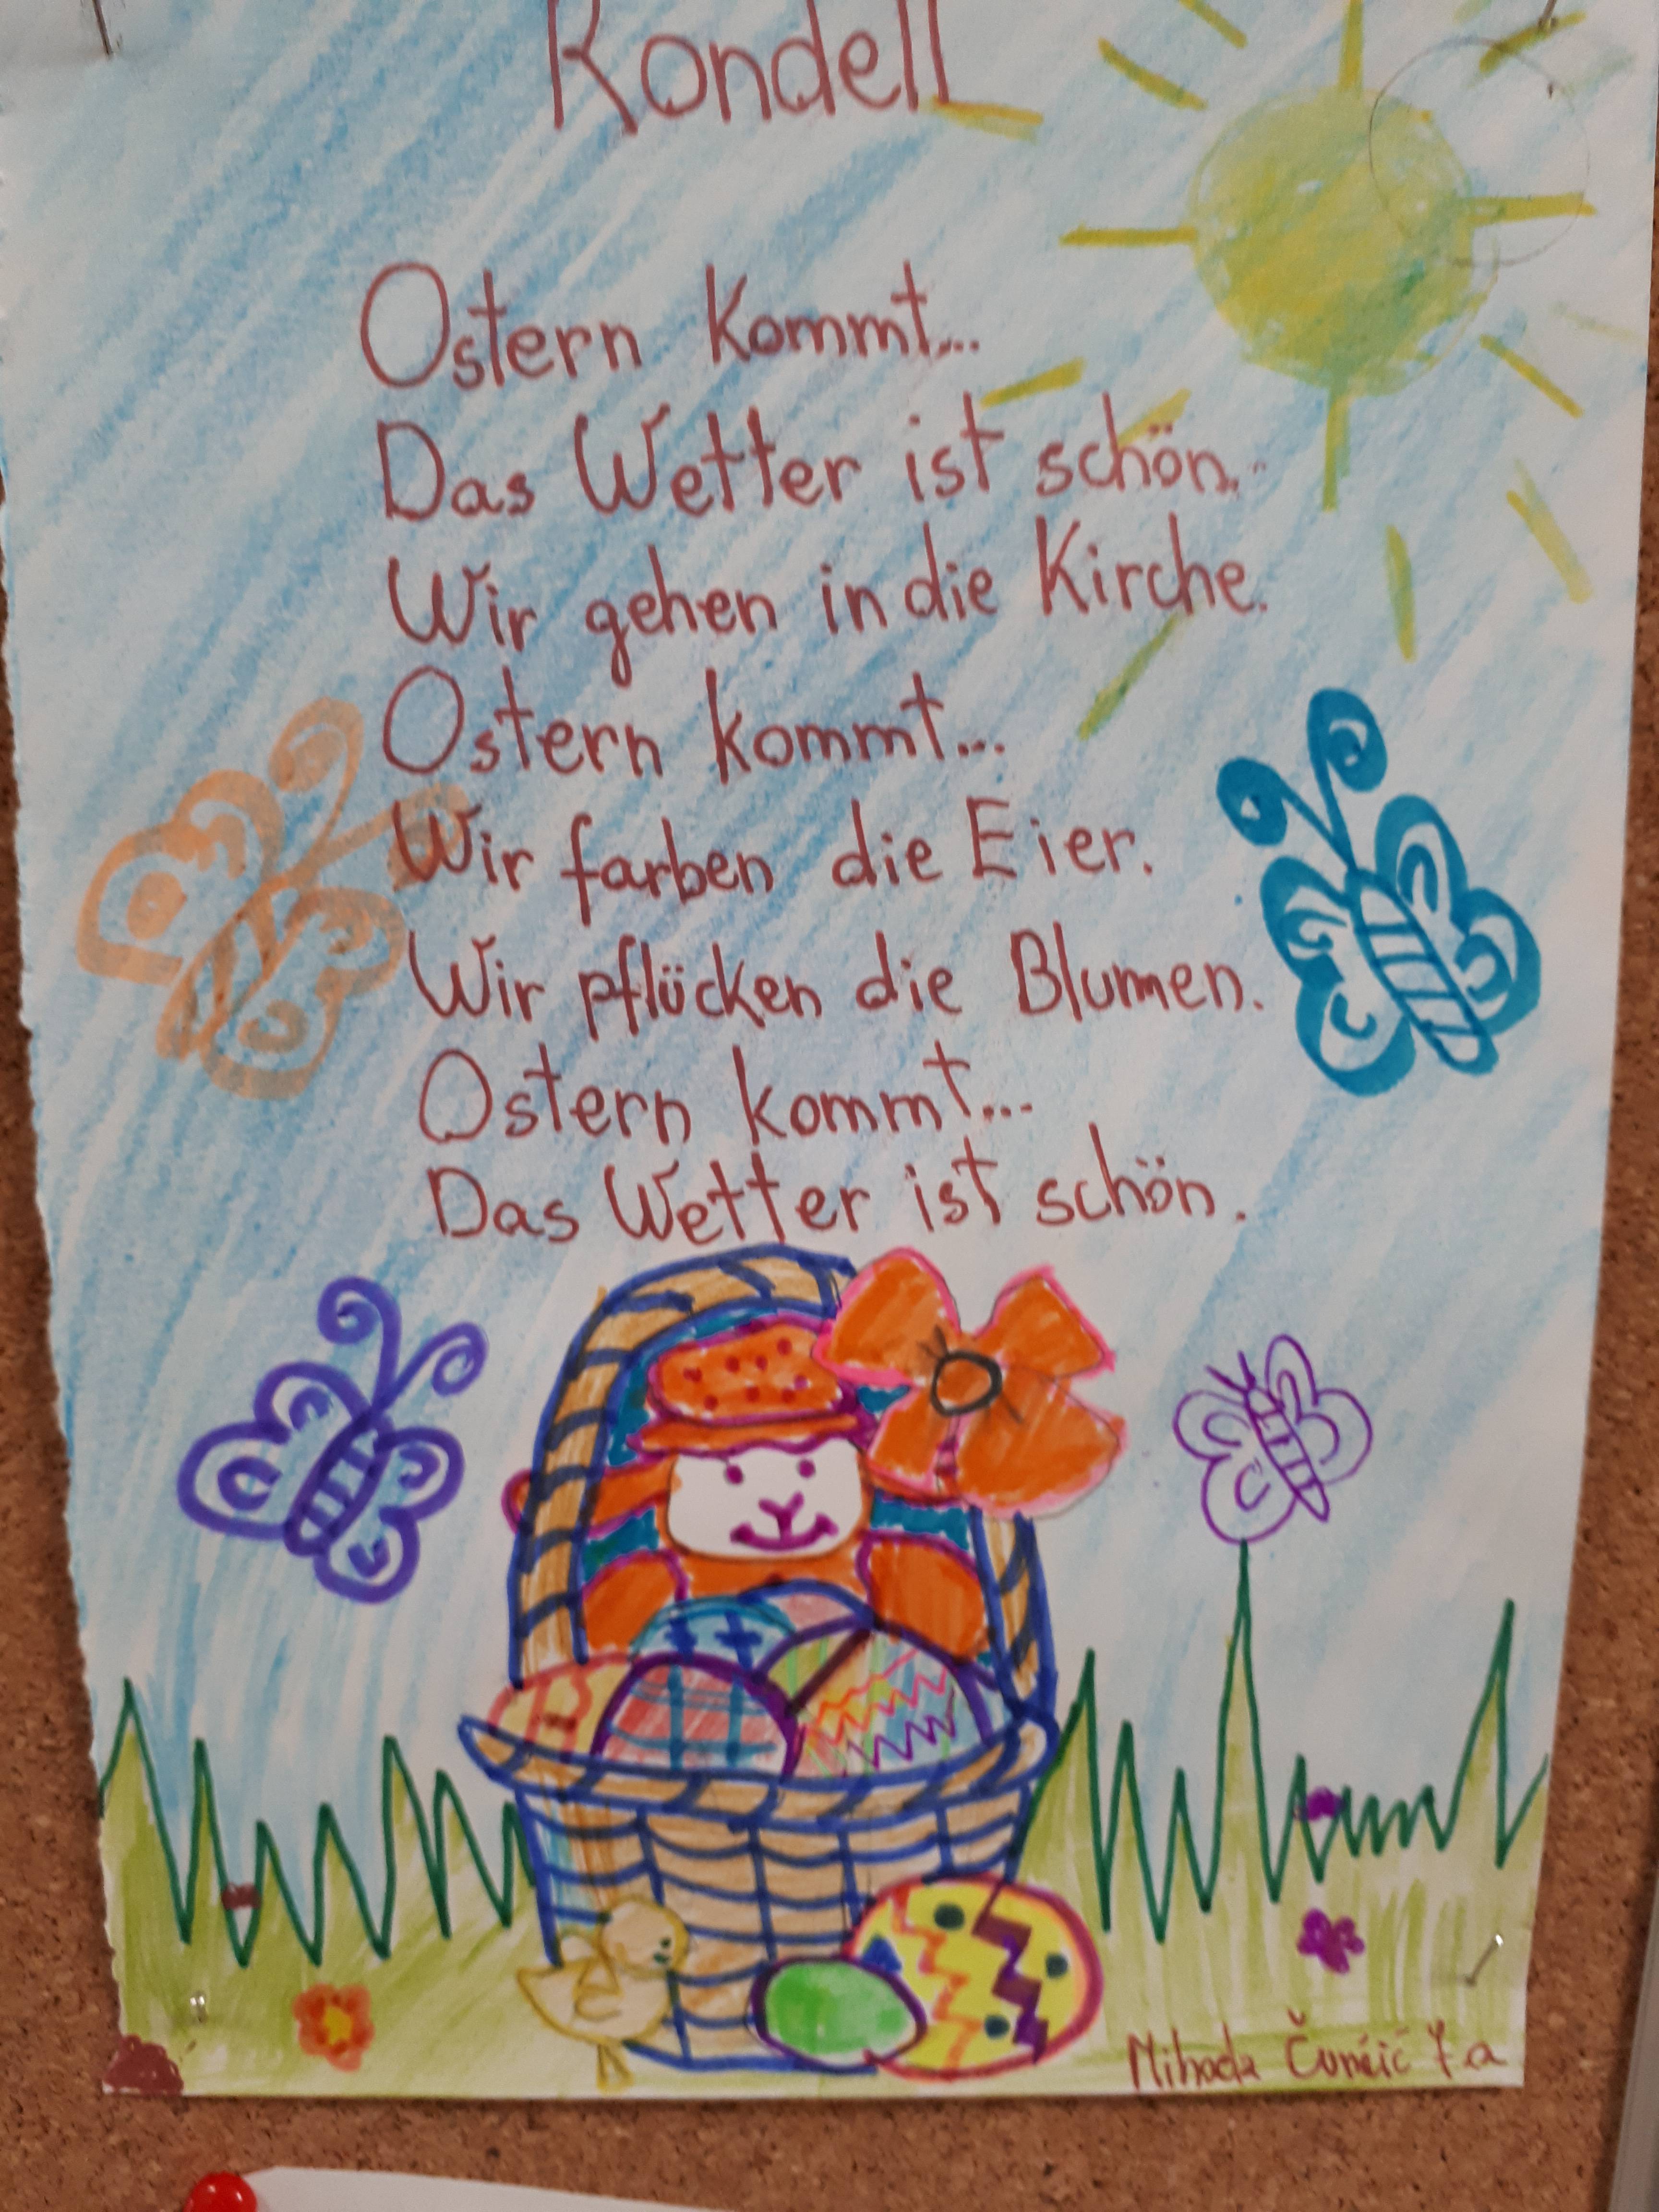 Rondell
Ostern kommt...
Das Wetter ist schön.
Wir gehen in die Kirche.
Ostern kommt...
Wir farben die Eier.
Wir pflücken die Blumen.
Ostern kommt...
Das Wetter ist schön.
7.a